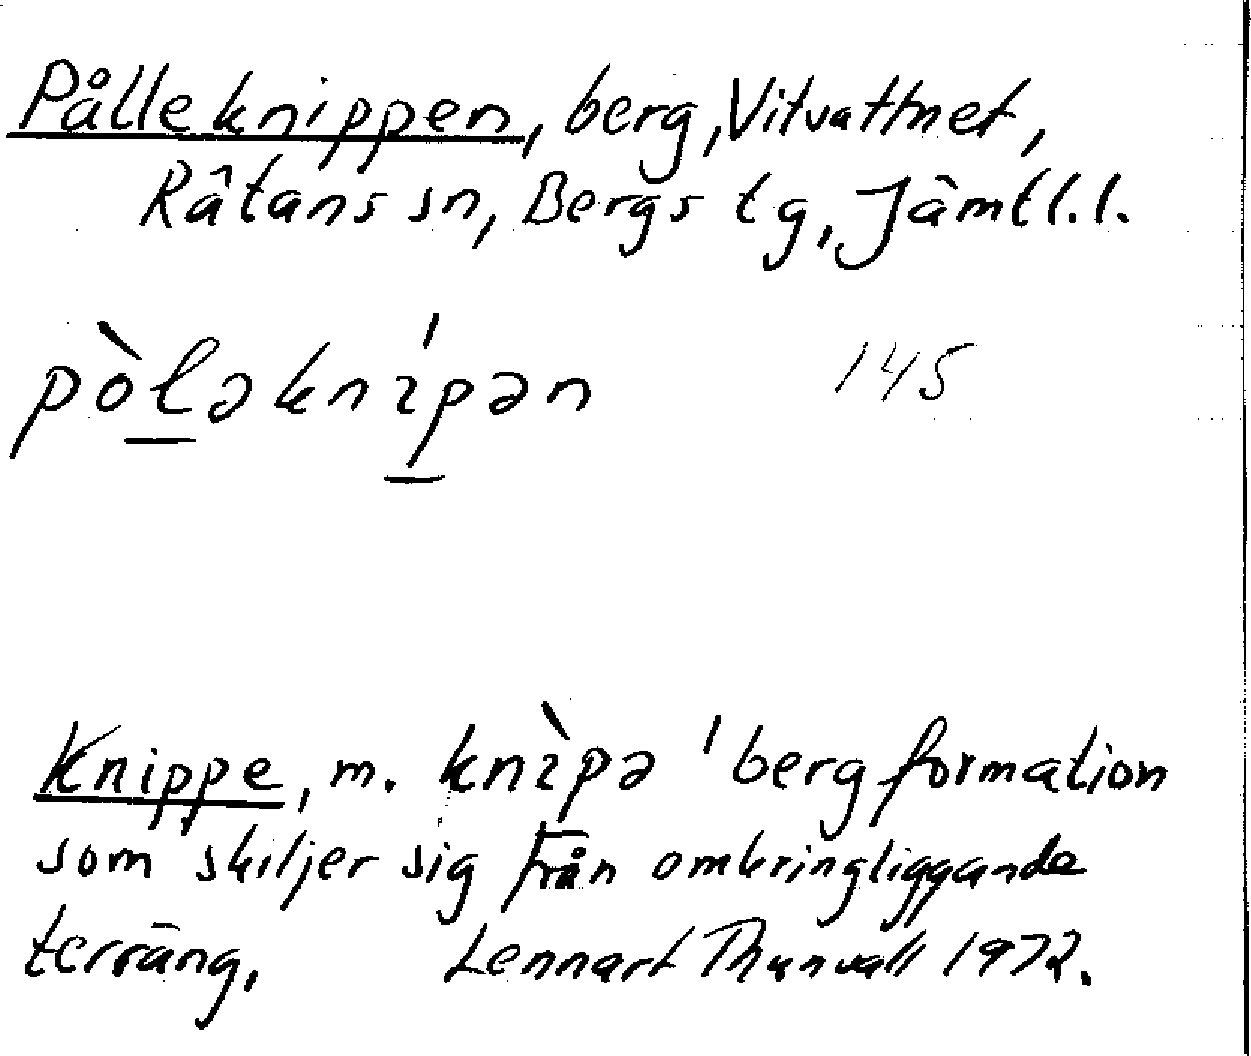 Pålleknippen, berg, Vitvattnet,
Råtans sn, Bergs tg, Jämtl. l.
pòləknɪ́pən 145
Knippe, m. knɪ̀pə 'bergformation
som skiljer sig från omkringliggande
terräng. Lennart Thunvall 1972.